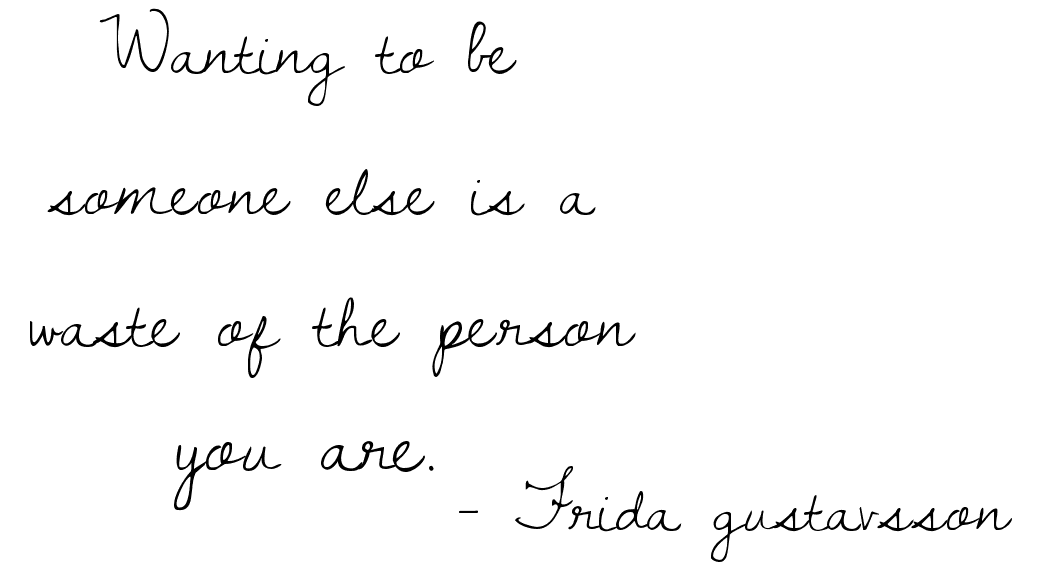 Wanting to be
someone else is a
waste of the person
you are.
- Frida gustavsson